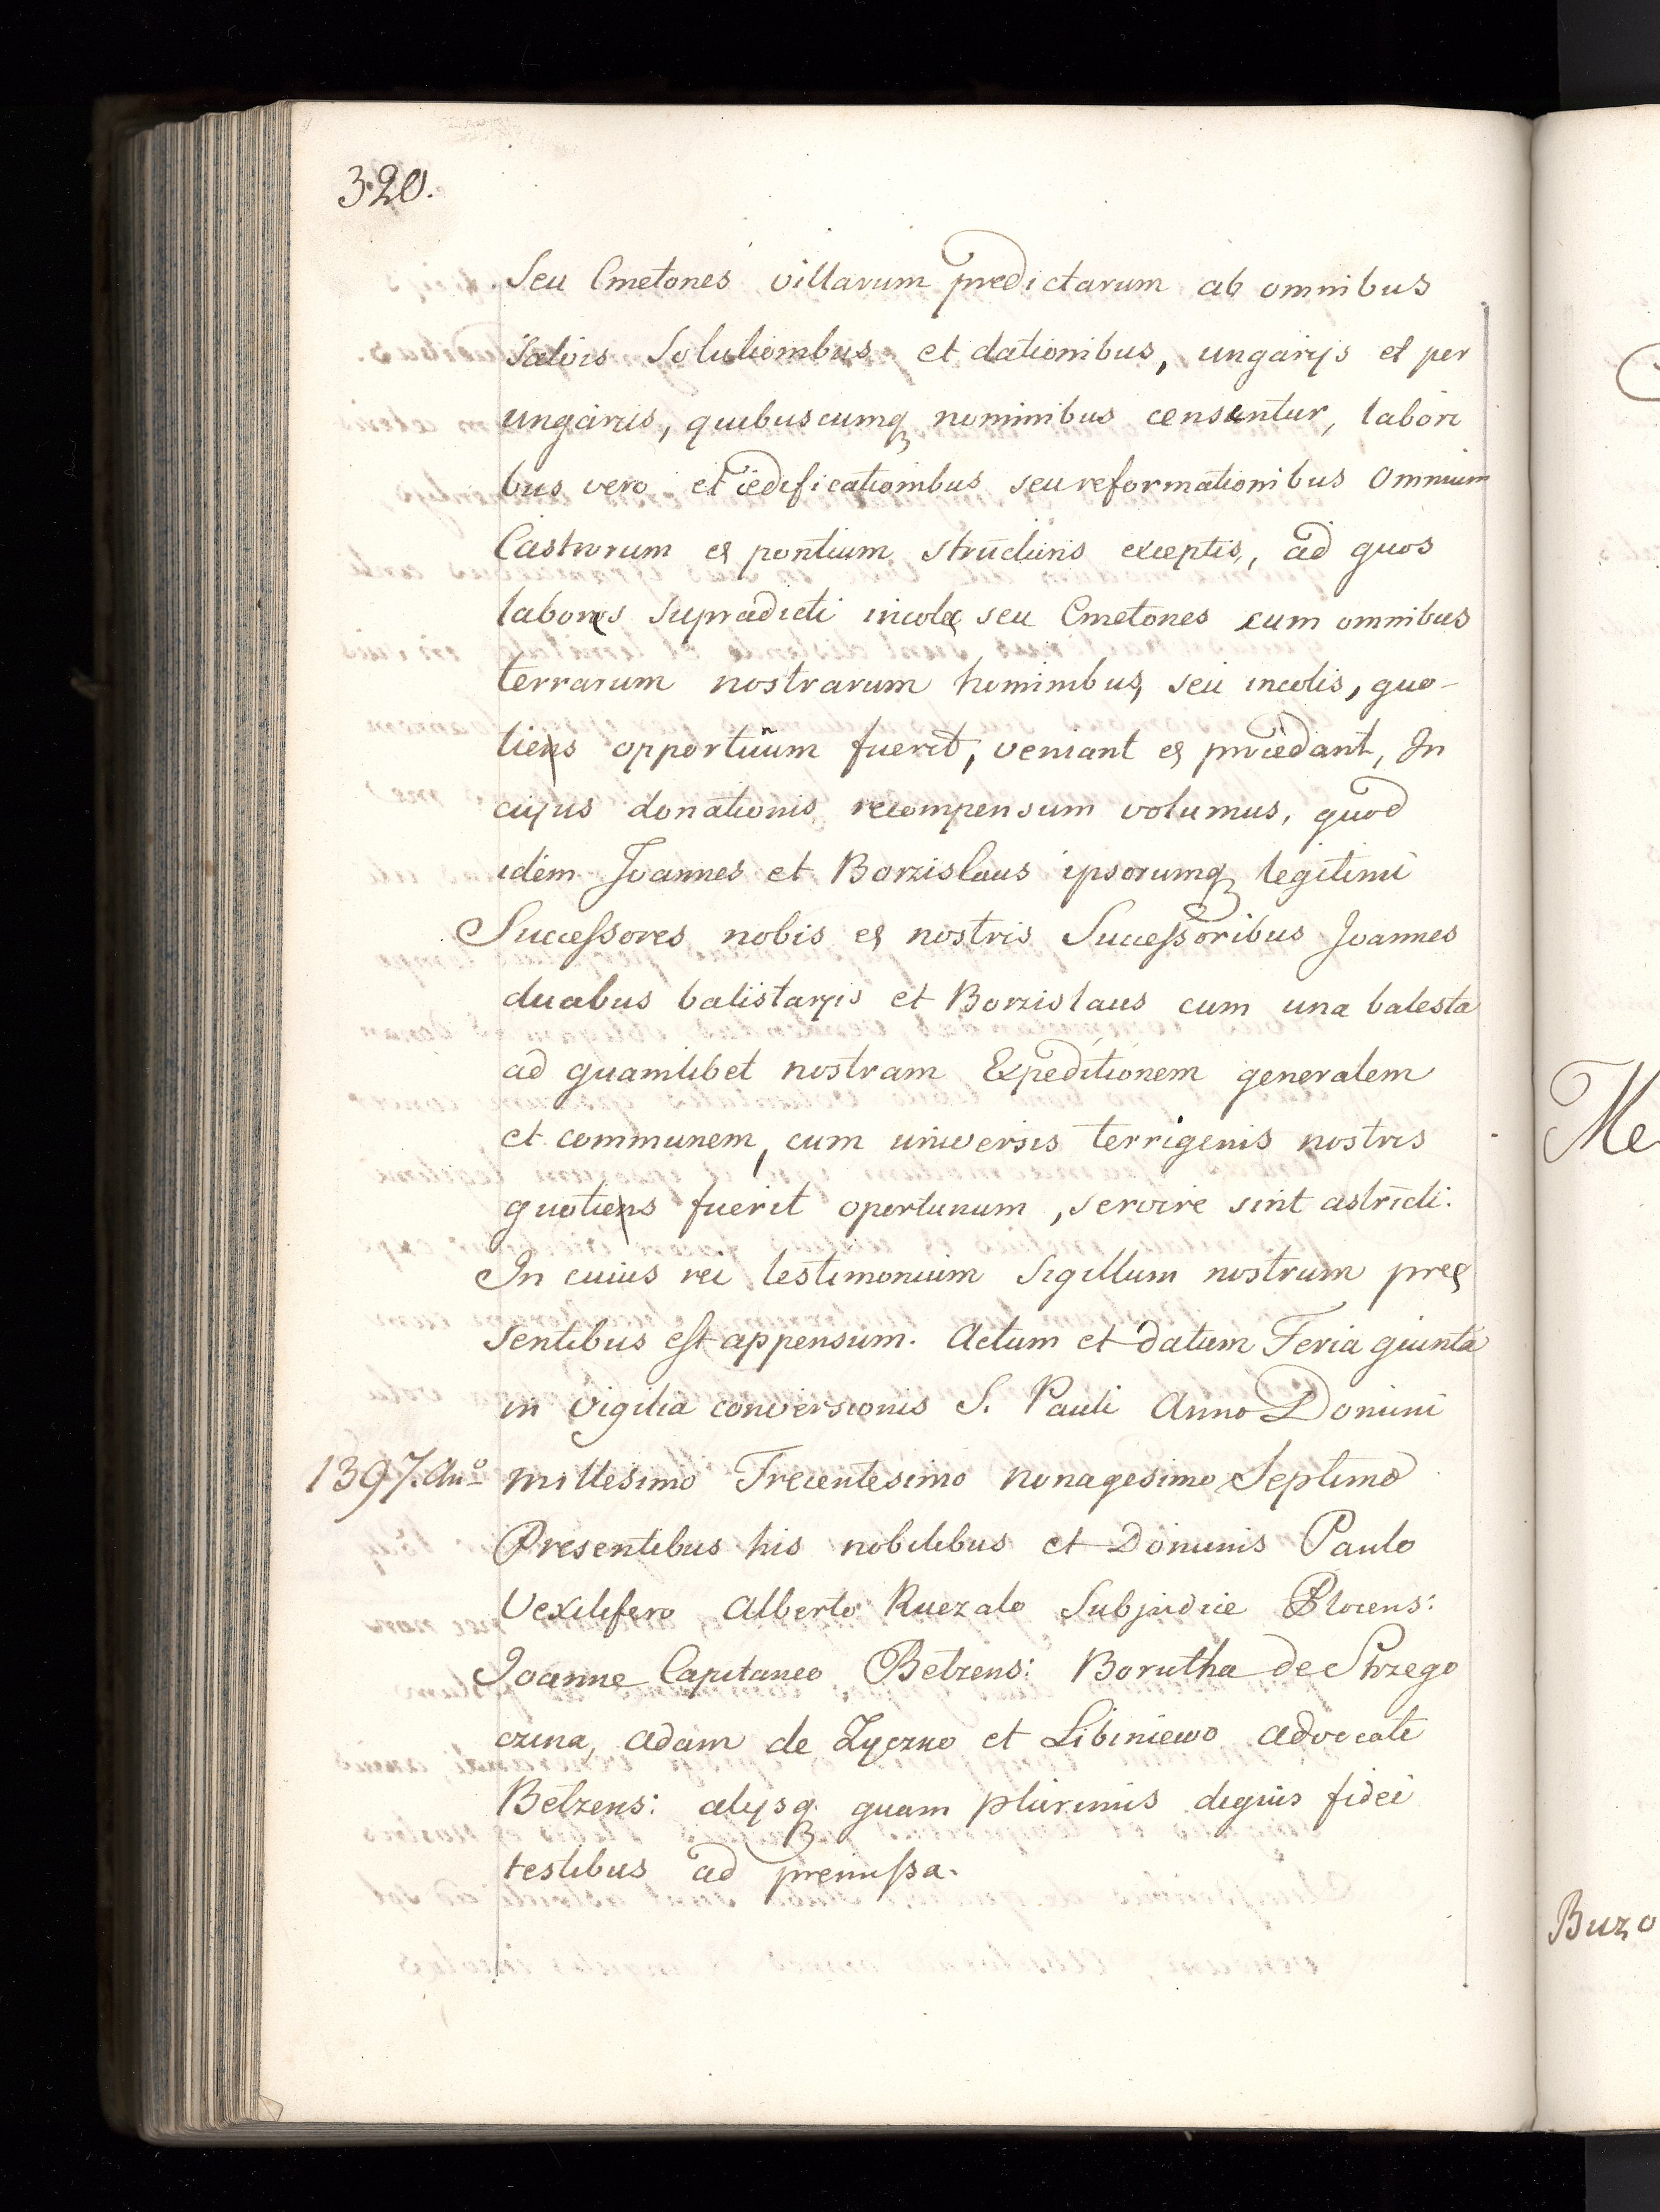 320.
Seu Cmetones villarum predictarum ab omnibus
Salvis Solutionibus et dationibus, ungarijs et per
ungarijs, quibuscumq nominibus censentur, labori
bus vero et ædificationibus seu reformationibus Omnium
Castrorum et pontium structuris exceptis, ad quos
labores Supradicti incolæ seu Cmetones cum omnibus
terrarum nostrarum hominibus, seu incolis, quo-
tiens opportuũm fuerit, veniant et procedant, In
cujus donationis recompensum volumus, quod
idem Joannes et Borzislaus ipsorumq legitimi
Successores nobis et nostris Successoribus Joannes
duabus balistarijs et Borzislaus cum una balesta
ad quamlibet nostram Expeditionem generalem
et communem, cum universis terrigenis nostris
quotiens fuerit oportunum, servire sint astricti.
In cuius rei testimonium Sigillum nostrum præ
sentibus est appensum. Actum et Datum Feria quinta
in Vigilia conversionis S. Pauli Anno Domini
1397. Anº millesimo Trecentesimo nonagesimo Septimo
Presentibus his nobilibus et Dominis Paulo
Vexilifero Alberto Kuczalo Subjudice Plocens:
Joanne Capitaneo Belzens: Borutha de Strzego
czina, Adam de Zyczko et Libiniewo advocati
Belzens: alijsq quam plurimis dignis fidei
testibus ad premissa.
Me
Buzo